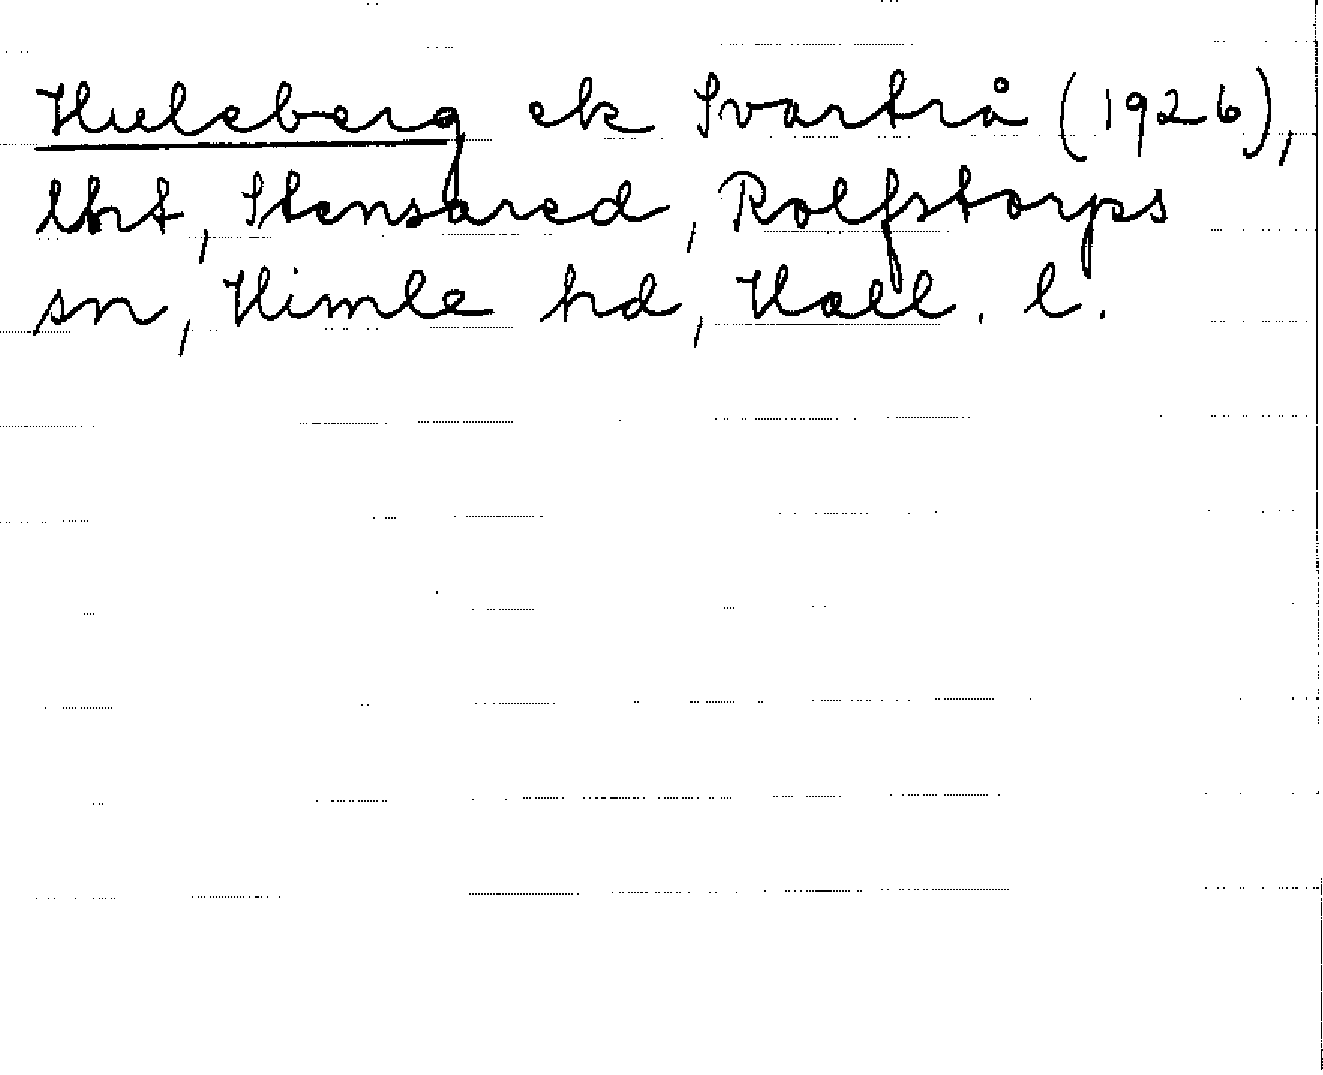 Huleberg ek Svartrå (1926),
lht, Stensared, Rolfstorps
sn, Himle hd, Hall. l.